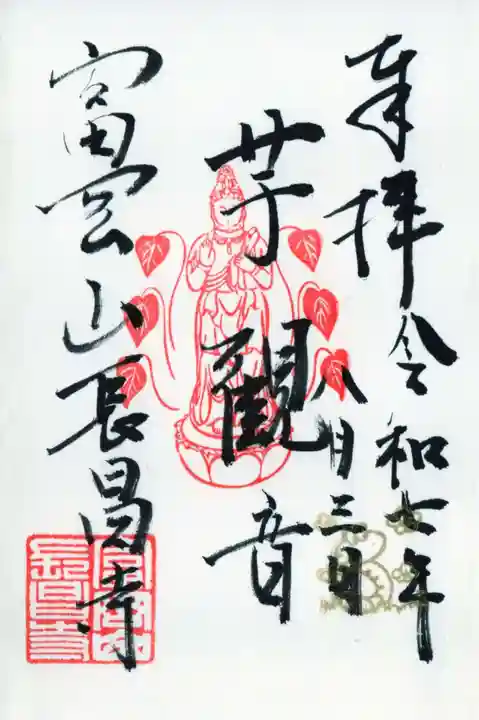 奉拝
令和七年
八月三日
芋観音
富雲山長昌寺